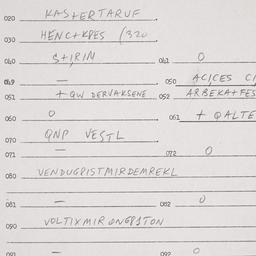 020 KASTERTARUF
030 HENCTKPES (320
040 STIRIN 041 O
049 — 050 ACICES CI
051 + QW DERVAKSENE 052 ARBEKA+FES
060 O 061 + QALTE
070 QNP VESTL
071 — 072 O
080 VENDUGPISTMIRDEMREKL
081 — 082 O
090 VOLTIXMIR ONGPSTON
091 — 092 O